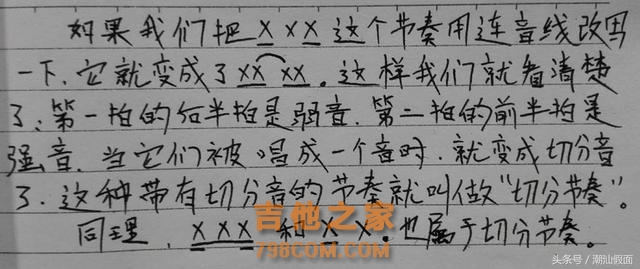 如果我们把X X X这个节奏用连音线改写
一下.它就变成了XX XX.这样我们就看清楚
了:第一拍的后半拍是弱音.第二拍的前半拍是
强音.当它们被唱成一个音时.就变成切分音
了.这种带有切分音的节奏就叫做“切分节奏”。
同理.X X X和X X.也属于切分节奏。
吉他之家
798COM.COM
头条号/潮汕假面